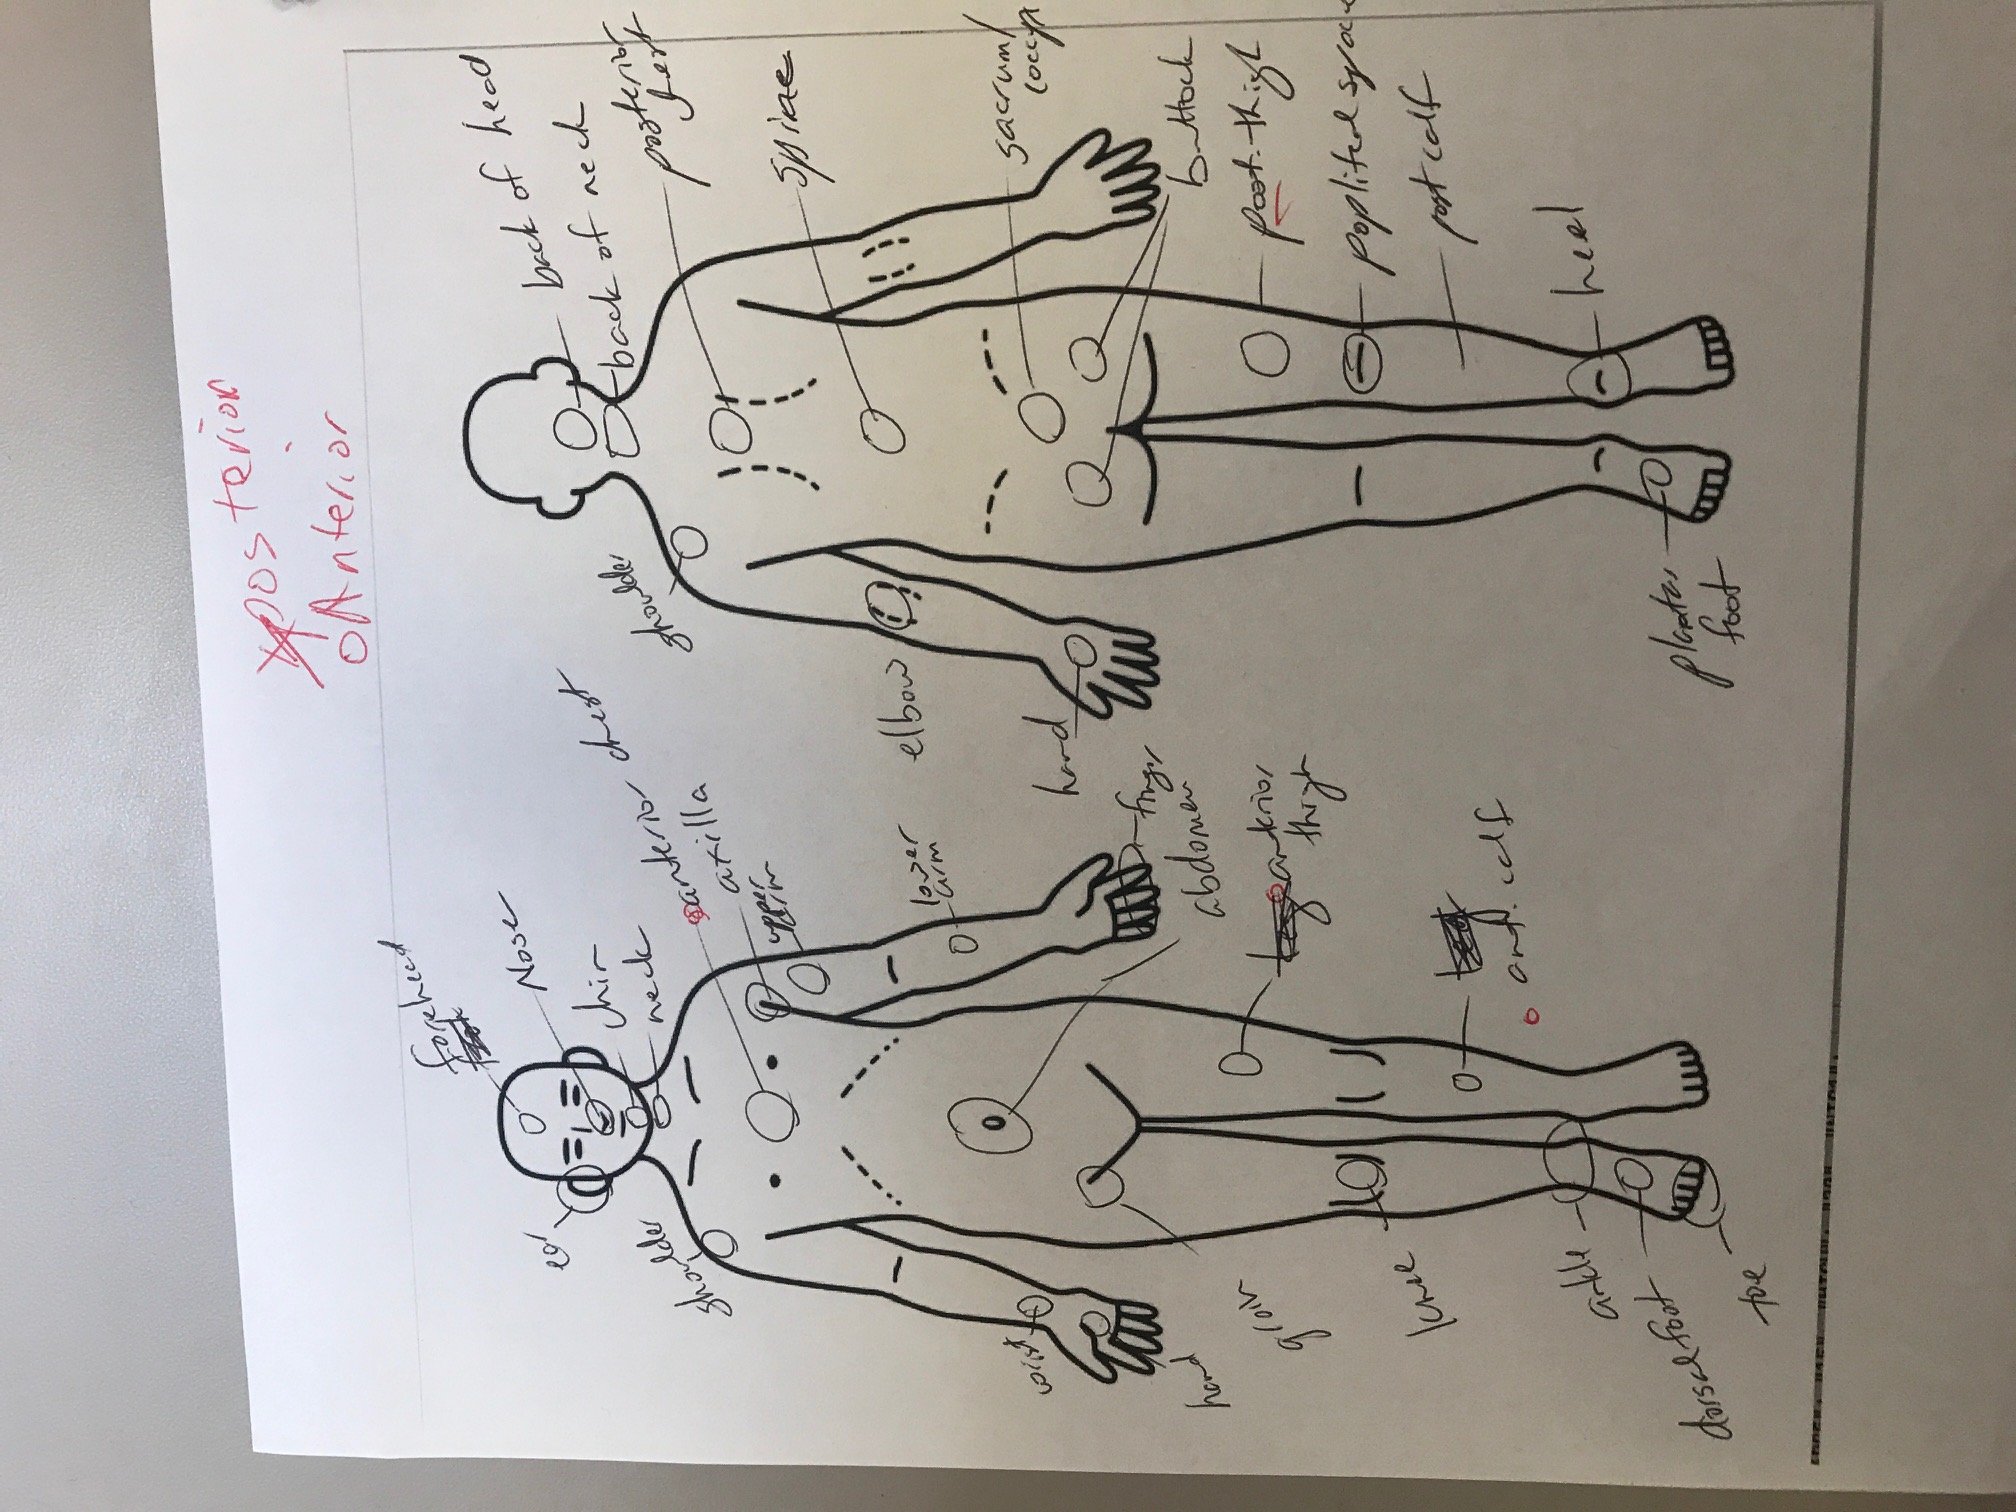 posterior
Anterior
forehead
Nose
ear
chin
neck
shoulder
anterior chest
axilla
upper
arm
lower
arm
wrist
hand
finger
abdomen
groin
anterior
thigh
knee
ant. calf
ankle
dorsal foot
toe
back of head
back of neck
shoulder
posterior
chest
spine
elbow
sacrum/
coccyx
hand
buttock
post. thigh
popliteal space
post calf
heel
plantar
foot